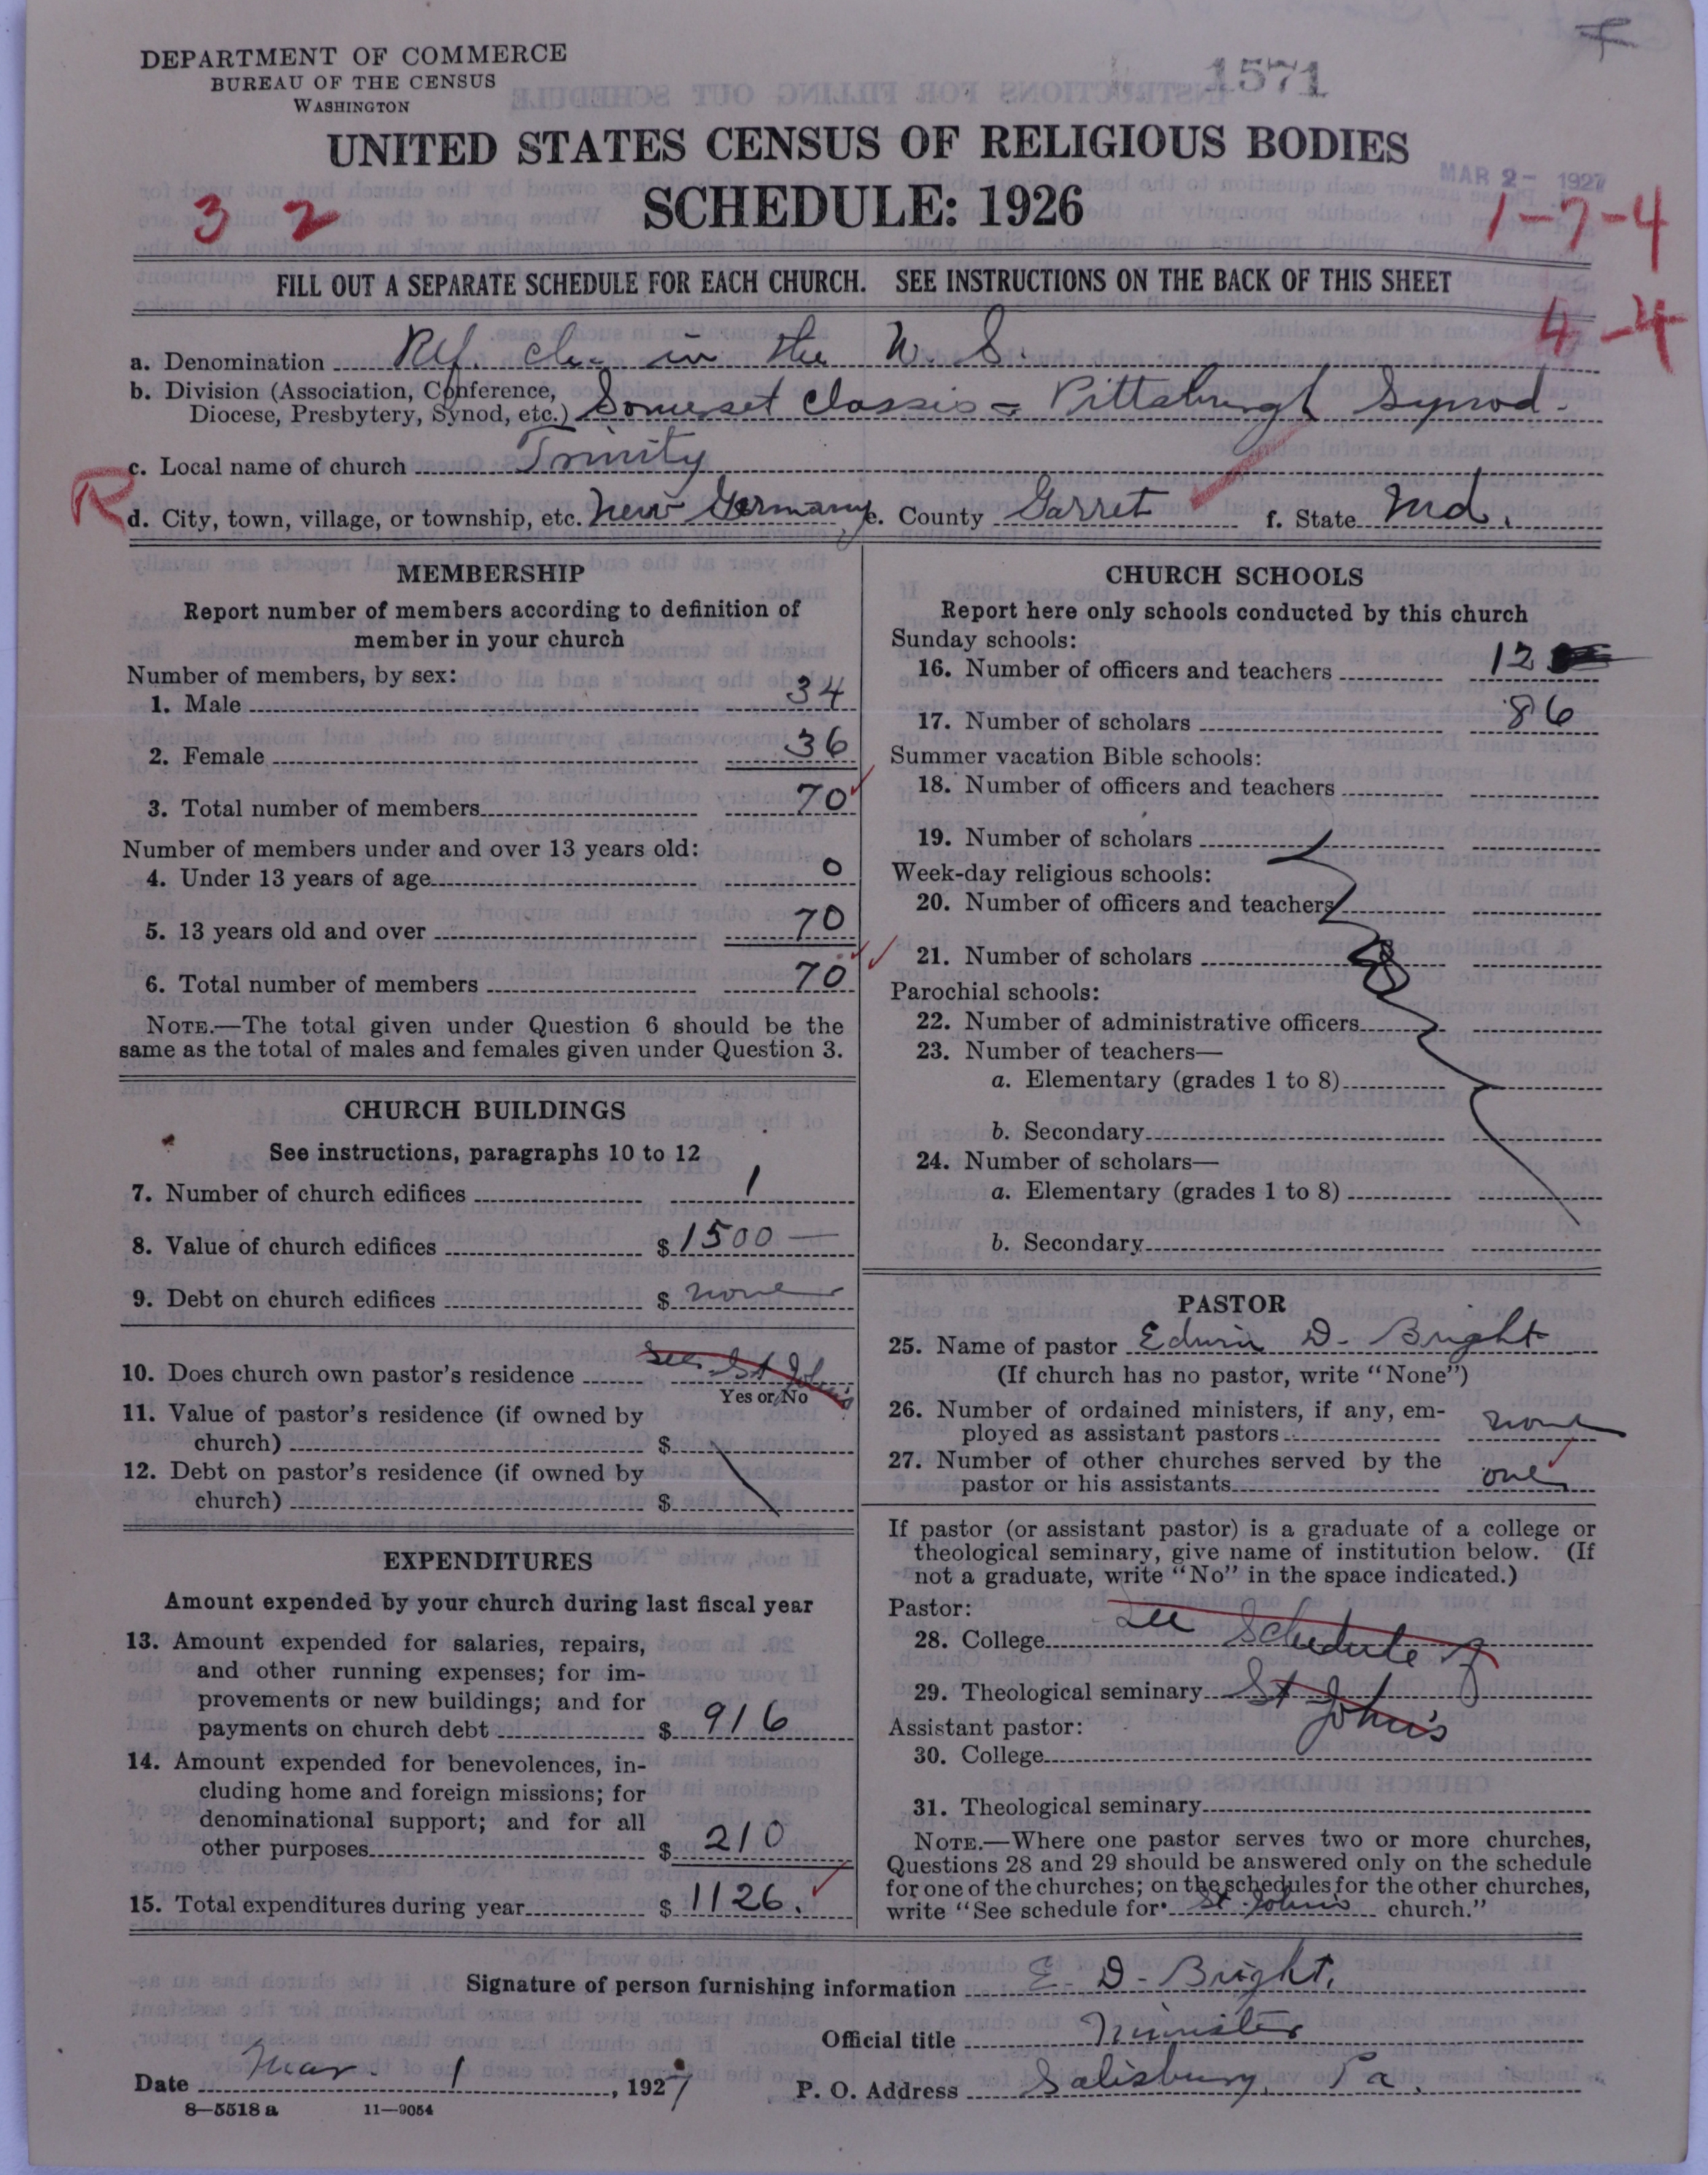 DEPARTMENT OF COMMERCE
BUREAU OF THE CENSUS
WASHINGTON
1571
UNITED STATES CENSUS OF RELIGIOUS BODIES
MAR 2 - 1927
SCHEDULE: 1926
3 2
1-7-4
FILL OUT A SEPARATE SCHEDULE FOR EACH CHURCH. SEE INSTRUCTIONS ON THE BACK OF THIS SHEET
4-4
a. Denomination Ref. Ch. in the U. S.
b. Division (Association, Conference,
Diocese, Presbytery, Synod, etc.) Somerset Classis - Pittsburgh Synod.
c. Local name of church Trinity
R
d. City, town, village, or township, etc. New Germany e. County Garret f. State Md.
MEMBERSHIP
Report number of members according to definition of
member in your church
Number of members, by sex:
1. Male 34
2. Female 36
3. Total number of members 70
Number of members under and over 13 years old:
4. Under 13 years of age 0
5. 13 years old and over 70
6. Total number of members 70
NOTE.—The total given under Question 6 should be the
same as the total of males and females given under Question 3.
CHURCH BUILDINGS
See instructions, paragraphs 10 to 12
7. Number of church edifices 1
8. Value of church edifices $ 1500 —
9. Debt on church edifices $ none
10. Does church own pastor's residence See St John's
Yes or No
11. Value of pastor's residence (if owned by
church) $
12. Debt on pastor's residence (if owned by
church) $
EXPENDITURES
Amount expended by your church during last fiscal year
13. Amount expended for salaries, repairs,
and other running expenses; for im-
provements or new buildings; and for
payments on church debt $ 916
14. Amount expended for benevolences, in-
cluding home and foreign missions; for
denominational support; and for all
other purposes $ 210
15. Total expenditures during year $ 1126.
CHURCH SCHOOLS
Report here only schools conducted by this church
Sunday schools:
16. Number of officers and teachers 12
17. Number of scholars 86
Summer vacation Bible schools:
18. Number of officers and teachers
19. Number of scholars
Week-day religious schools:
20. Number of officers and teachers
21. Number of scholars
Parochial schools:
22. Number of administrative officers
23. Number of teachers—
a. Elementary (grades 1 to 8)
b. Secondary
24. Number of scholars—
a. Elementary (grades 1 to 8)
b. Secondary
PASTOR
25. Name of pastor Edwin D. Bright
(If church has no pastor, write "None")
26. Number of ordained ministers, if any, em-
ployed as assistant pastors none
27. Number of other churches served by the
pastor or his assistants one
If pastor (or assistant pastor) is a graduate of a college or
theological seminary, give name of institution below. (If
not a graduate, write "No" in the space indicated.)
Pastor:
28. College See Schedule of
29. Theological seminary St John's
Assistant pastor:
30. College
31. Theological seminary
NOTE.—Where one pastor serves two or more churches,
Questions 28 and 29 should be answered only on the schedule
for one of the churches; on the schedules for the other churches,
write "See schedule for St. John's church."
Signature of person furnishing information E. D. Bright.
Official title Minister
Date Mar. 1, 1927 P. O. Address Salisbury, Pa.
8—5518 a 11—9054